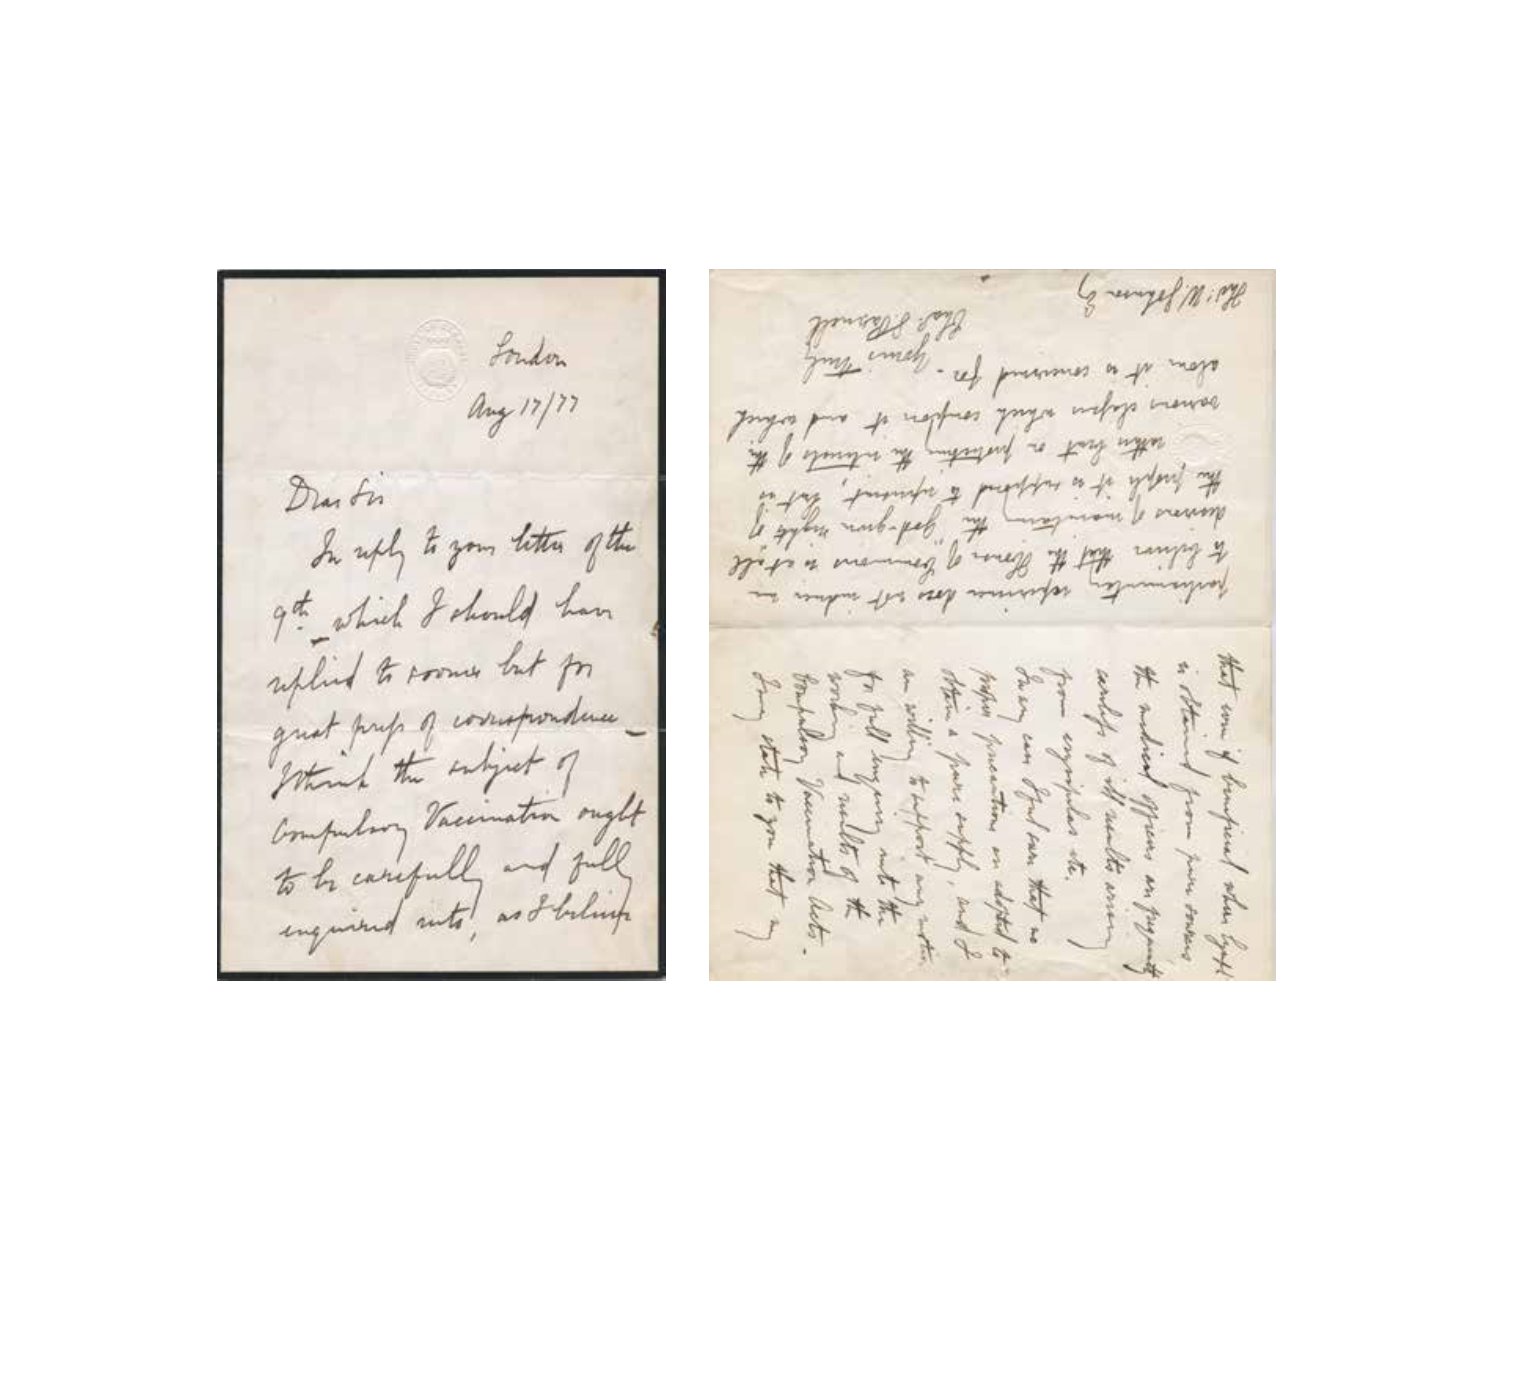 London
Aug 17/77
Dear Sir
In reply to your letter of the
9th which I should have
replied to sooner but for
great press of correspondence
I think the subject of
Compulsory Vaccination ought
to be carefully and fully
enquired into, as I believe
that even if beneficial when lymph
is obtained from pure sources
the medical officers are frequently
careless of ill results arising
from erysipelas etc.
In any case I feel sure that no
proper precautions are adopted to
obtain a pure supply, and I
am willing to support any motion
for full enquiry into the
working and results of the
Compulsory Vaccination Acts.
I may state to you that my
parliamentary experience does not induce me
to believe that the House of Commons is at all
desirous of maintaining the "God-given rights" of
the people it is supposed to represent, but is
rather bent on protecting the interests of the
various classes which compose it and which
alone it is concerned for.
Yours truly
Chas. S Parnell
Thos: W. Johnson Esq